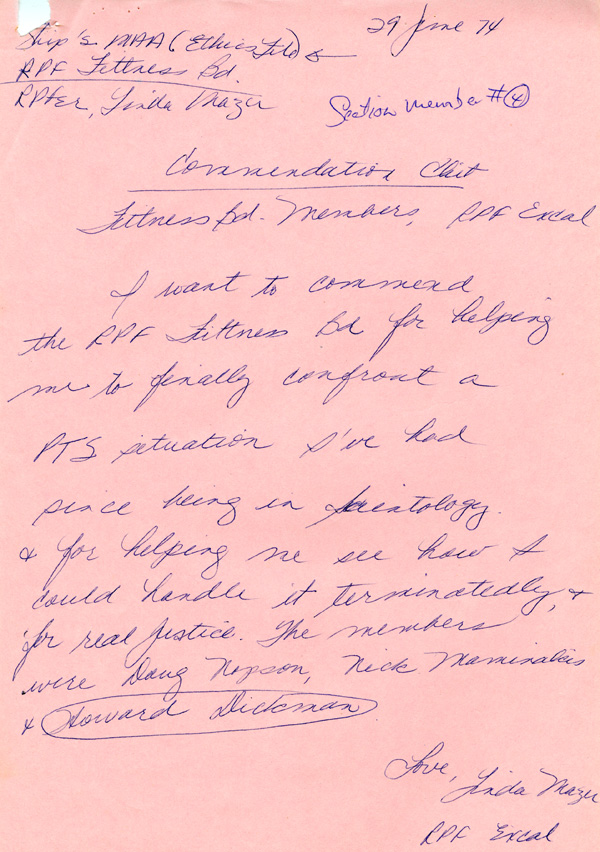 Ship's MAA (Ethics File) &
29 June 74
RPF Fittness Bd.
RPFer, Linda Mazer
Section member #4
Commendation Chit
Fittness Bd. Members, RPF Excal
I want to commend
the RPF Fittness Bd for helping
me to finally confront a
PTS situation I've had
since being in Scientology.
& for helping me see how I
could handle it terminatedly, &
for real justice. The members
were Doug Nopson, Nick Maminakis
& Howard Dickman
Love,
Linda Mazer
RPF Excal